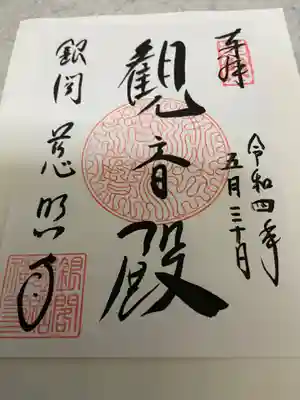 奉拝
令和四年
五月三十日
観音殿
銀閣 慈照寺